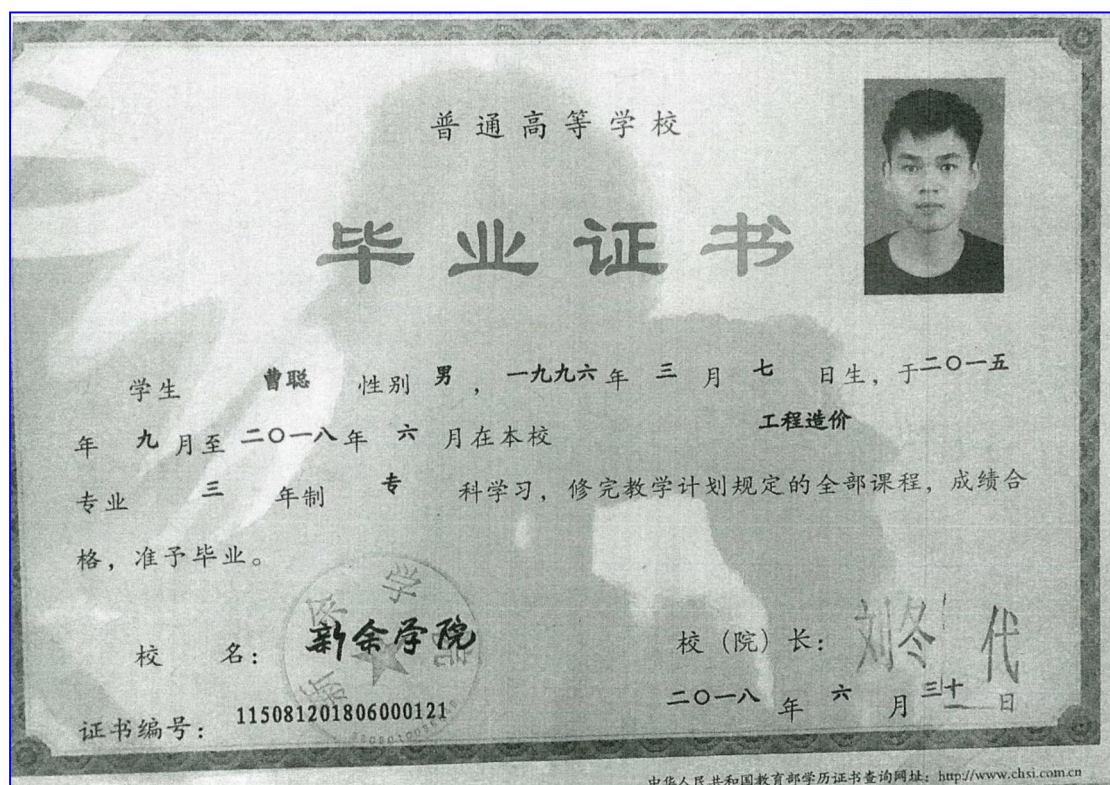 普通高等学校
毕业证书
学生 曹聪 性别 男，一九九六年 三 月 七 日生，于二〇一五
年 九 月至 二〇一八 年 六 月在本校 工程造价
专业 三 年制 专 科学习，修完教学计划规定的全部课程，成绩合
格，准予毕业。
校 名： 新余学院
校（院）长： 刘冬代
二〇一八 年 六 月 三十 日
证书编号： 115081201806000121
中华人民共和国教育部学历证书查询网址：http://www.chsi.com.cn